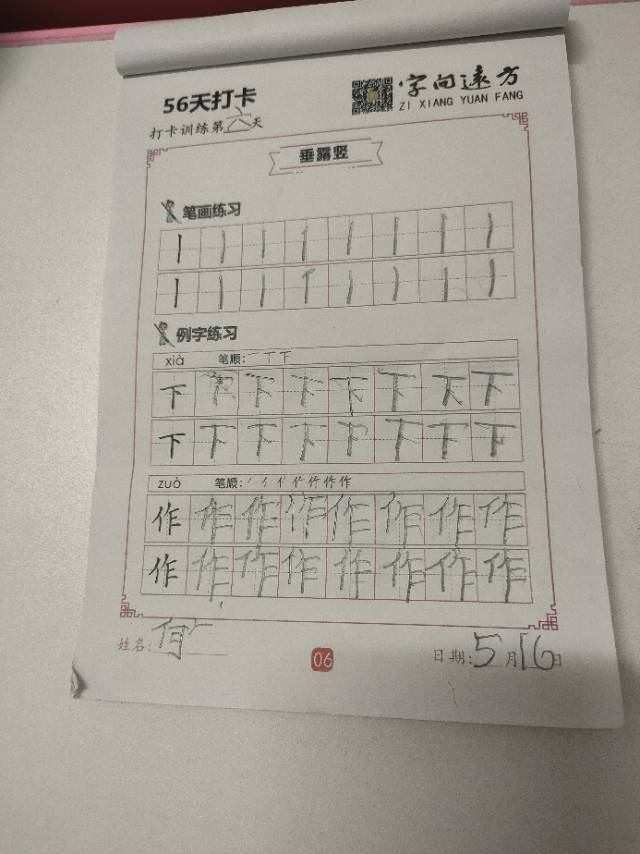 56天打卡
字向远方
ZI XIANG YUAN FANG
打卡训练第六天
垂露竖
笔画练习
例字练习
xià 笔顺:一丅下
下下下下下下下下
下下下下下下下下
zuò 笔顺:
作作作作作作作作
作作作作作作作作
姓名:
06
日期:5月16日